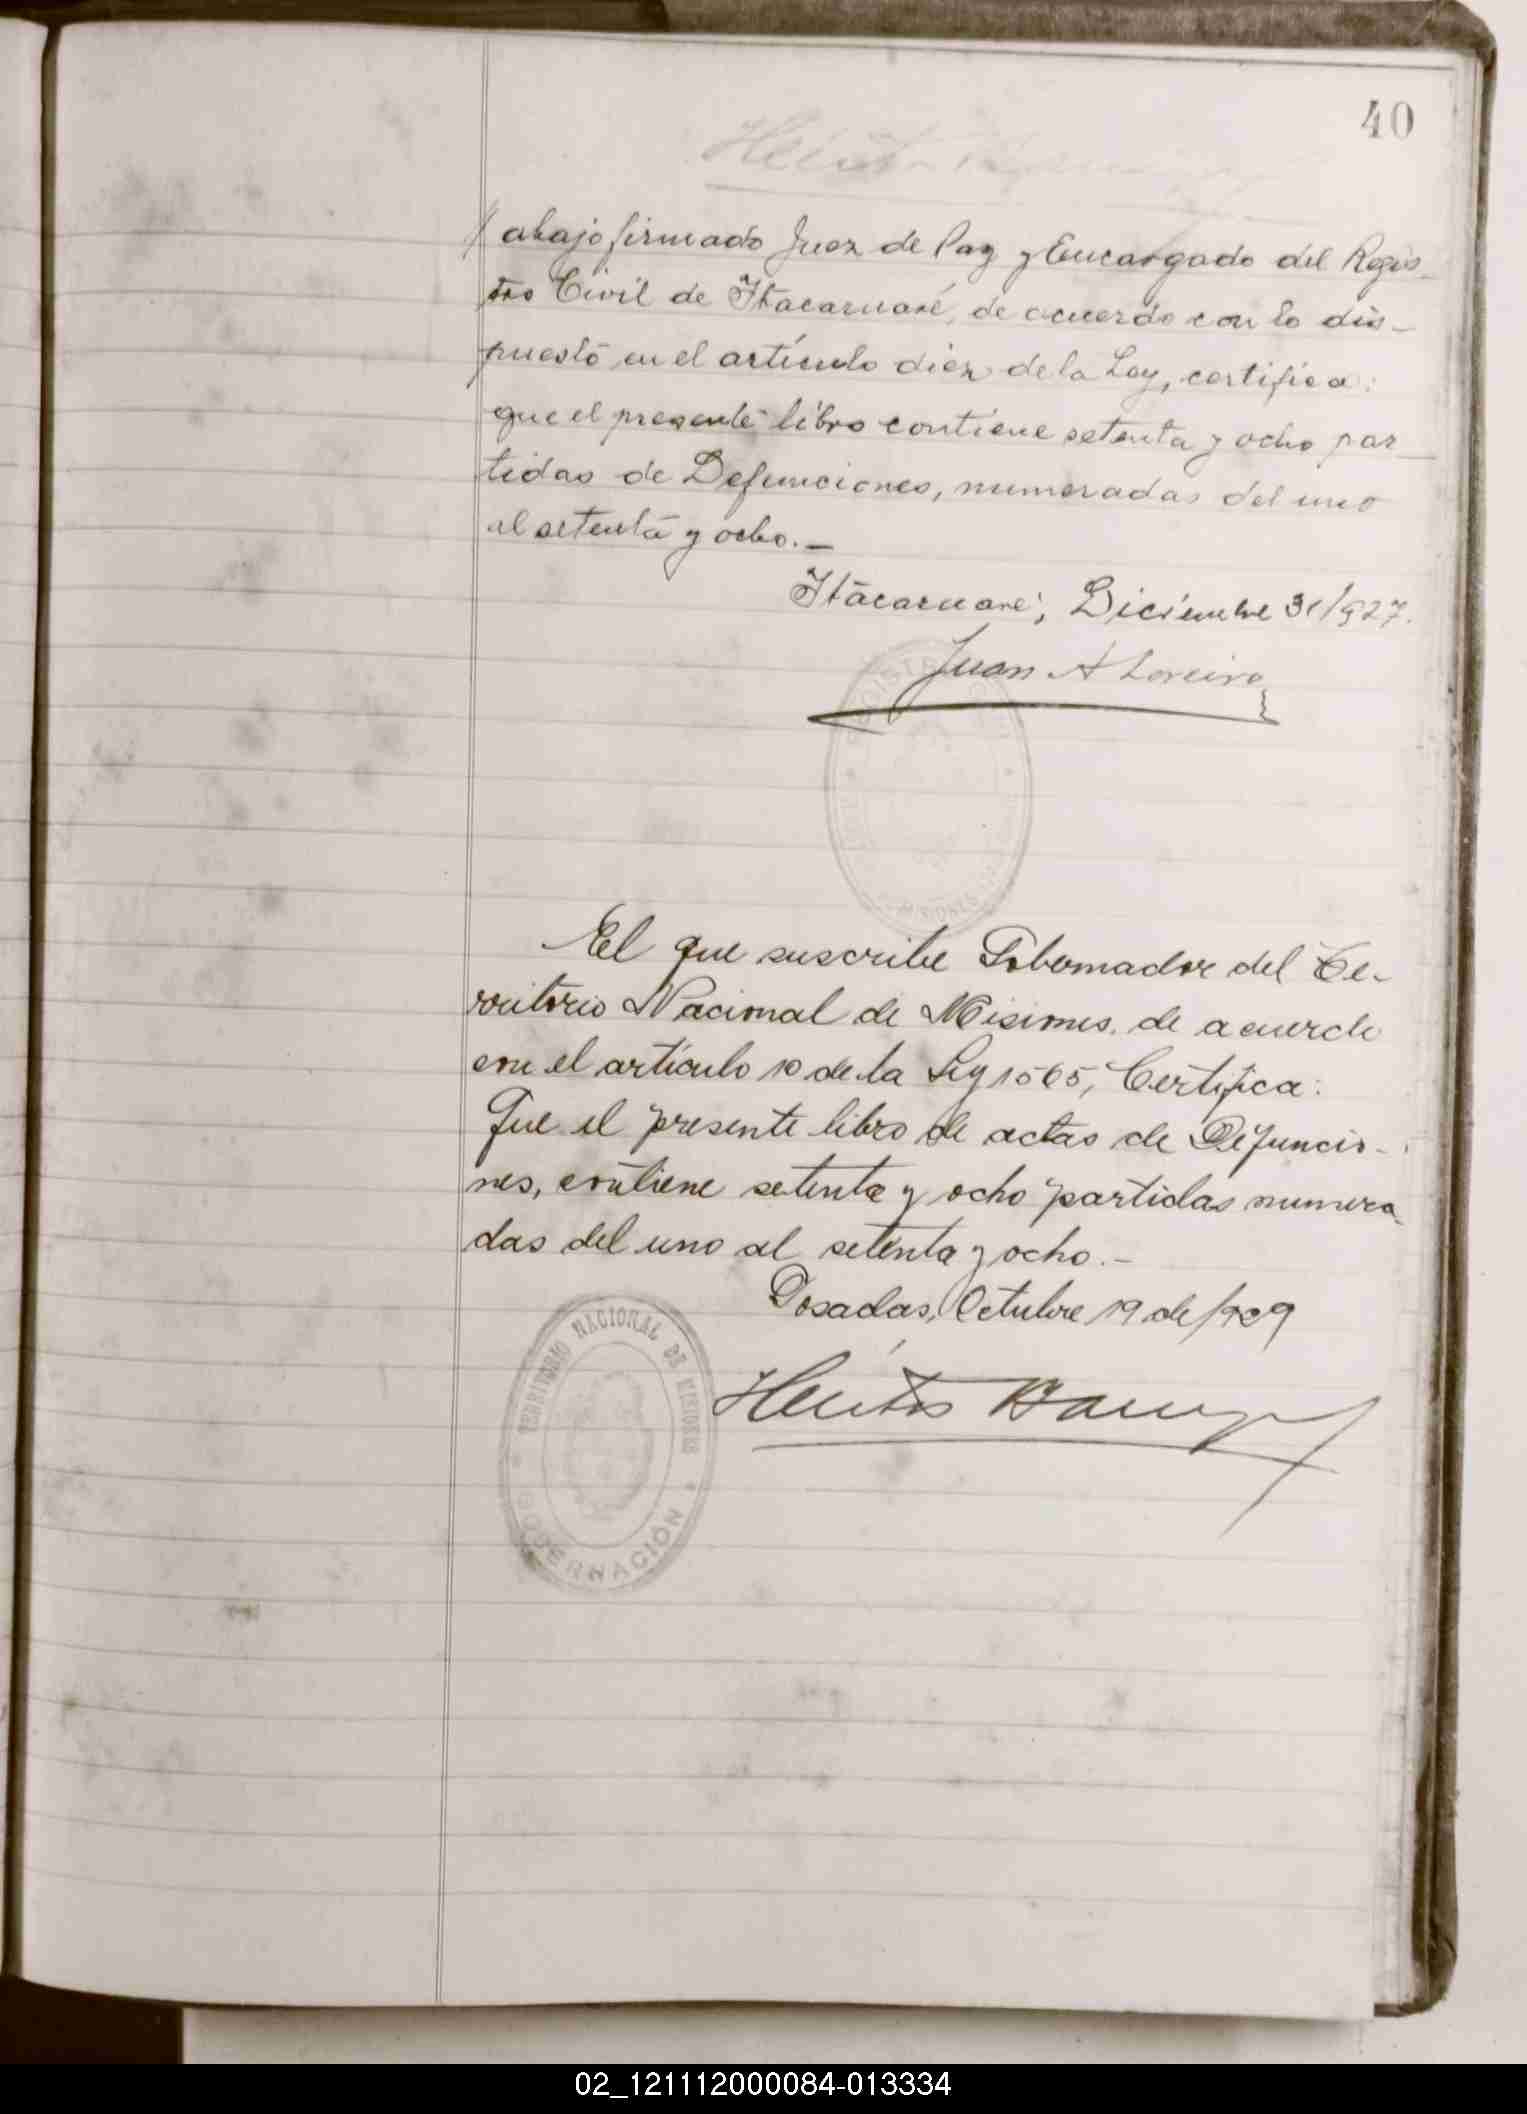 40
abajo firmado Juez de Paz y Encargado del Regis-
tro Civil de Itacaruaré, de acuerdo con lo dis-
puesto en el artículo diez de la Ley, certifica:
que el presente libro contiene setenta y ocho par-
tidas de Defunciones, numeradas del uno
al setenta y ocho.-
Itacaruaré, Diciembre 31/927.
Juan A Loreiro
El que suscribe Gobernador del Te-
rritorio Nacional de Misiones, de acuerdo
con el artículo 10 de la Ley 1565, Certifica:
Que el presente libro de actas de Defuncio-
nes, contiene setenta y ocho partidas numera-
das del uno al setenta y ocho.-
Posadas, Octubre 19 de 1929
TERRITORIO NACIONAL DE MISIONES
GOBERNACIÓN
Héctor
02_121112000084-013334